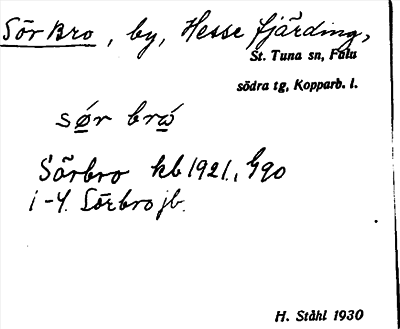 Sör Bro, by, Hesse fjärding,
St. Tuna sn, Falu
södra tg, Kopparb. l.
sør bro
Sörbro kb 1921., G90
i-4. Sörbro jb.
H. Ståhl 1930